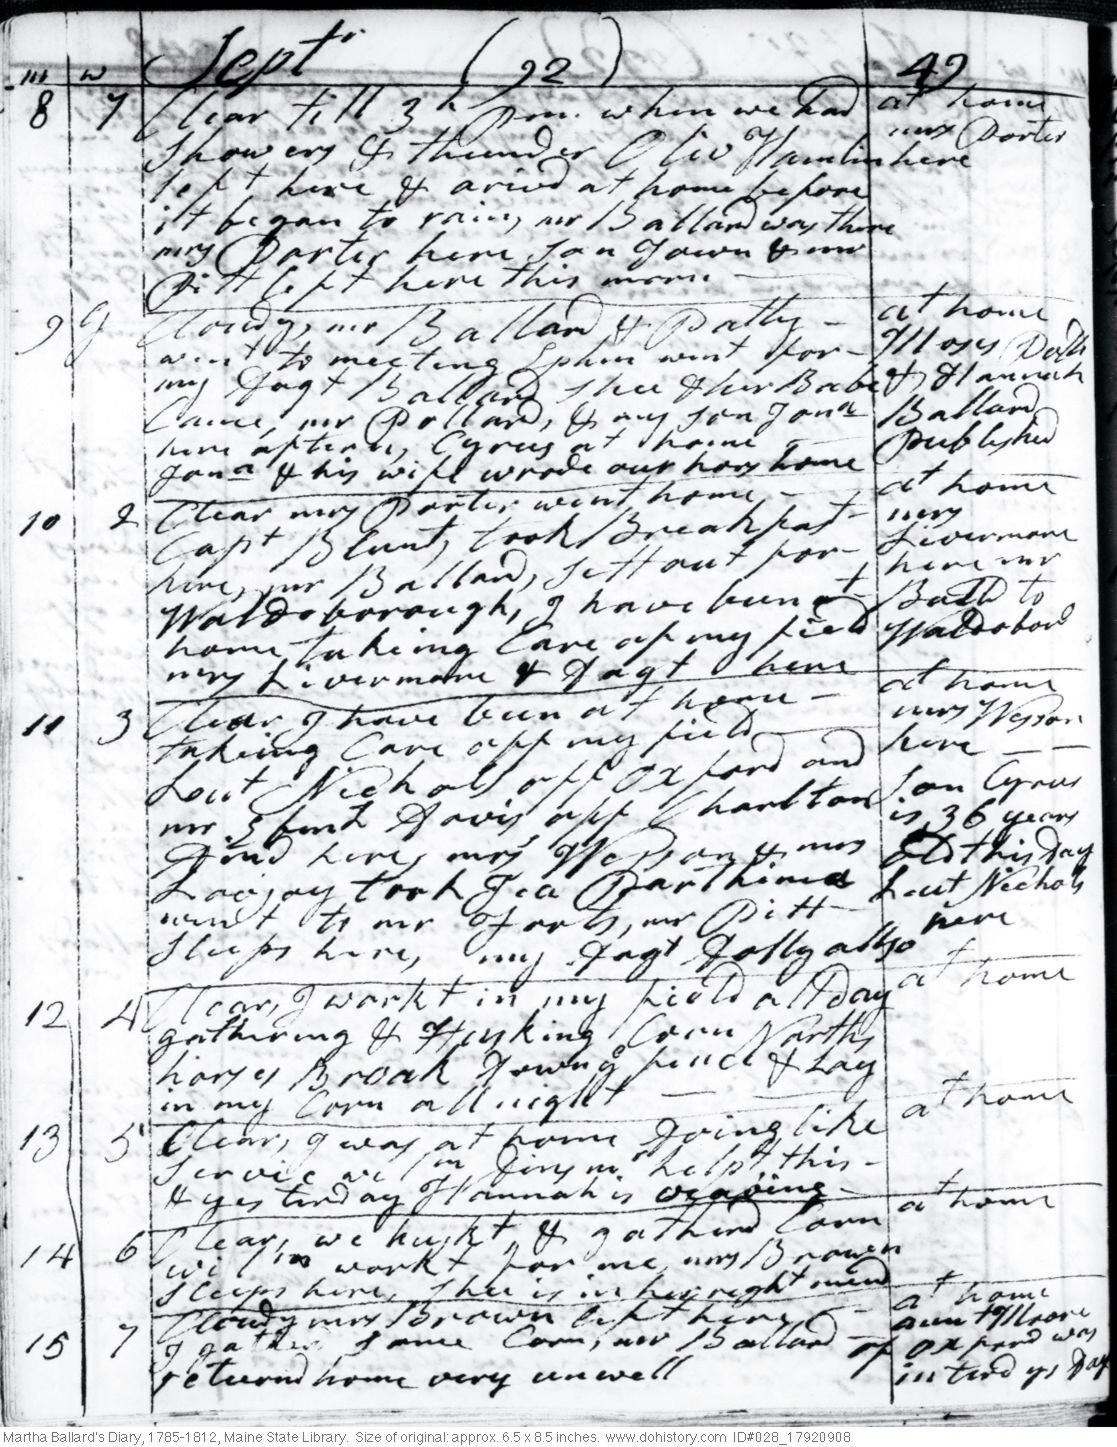 m w Septr (92) 49
8 7 Clear till 3 h pm. when we had
Showers & thunder Oliv Hamlin
left here & arivd at home before
it began to rain, mr Ballard was there
mrs Porter here Son Town & mr
Pitt left here this morn
at home
mrs Porter
here
9 g Cloudy, mr Ballard & Patty
went to meeting Ephm went for
my Dagt Ballard, Shee & her Babe
Came, mr Pollard, & my son Jona
here aftern, Cyrus at home
Jona & his wife wrode our hors home
at home
Moses
& Hannah
Ballard
Published
10 2 Clear mrs Porter went home,
Capt Blunt, took Breakfast
here, mr Ballard, sett out for
Waldoborough, I have been at
home taking Care of my field
mrs Livermore & Dagt here
at home
mrs
Livermore
here mr
Balld to
Waldobord
11 3 Clear, I have been at home
taking Care off my field
Leut Nichols off oxford and
mr Davis off Charlton
Dind here, mrs Wesson & mrs
took Tea Parthina
went to mr Forts, mr Pitt
Sleeps here, my Dagt Dolly allso
at home
mrs Wesson
here
Son Cyrus
is 36 years
old this Day
Leut Nichols
here
12 4 Clear, I workt in my field all day
gathering & Husking Corn Norths
horses Broak Down ye fence & Lay
in my Corn all night
at home
13 5 Clear, I was at home Doing like
Service help this
& yesterday Hannah is weaving
at home
14 6 Clear, we huskt, & gatherd Corn
willm workt for me, mrs Brown
Sleeps here, Shee is in her right mind
at home
15 7 Cloudy mrs Brown left here
I gather Some Corn, mr Ballard
returnd home very unwell
at home
aunt Moore
of oxford was
interd ys Day
Martha Ballard's Diary, 1785-1812, Maine State Library. Size of original: approx. 6.5 x 8.5 inches. www.dohistory.com ID#028_17920908